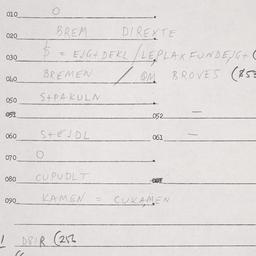 010 O
020 BREM DIREKTE
030 $ = EJG+DEKL / LEPLAXFUNDEJG+(
040 BREMEN / OM BROVES (
050 S+PAKULN
051 052 —
060 S+EJDL 061 —
070 O
080 CUPUDLT
090 KAMEN = CUKAMEN
DSIR (256